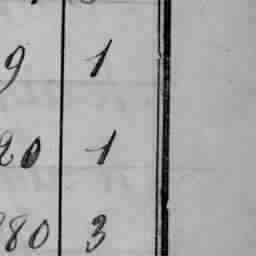 9 1
20 1
80 3